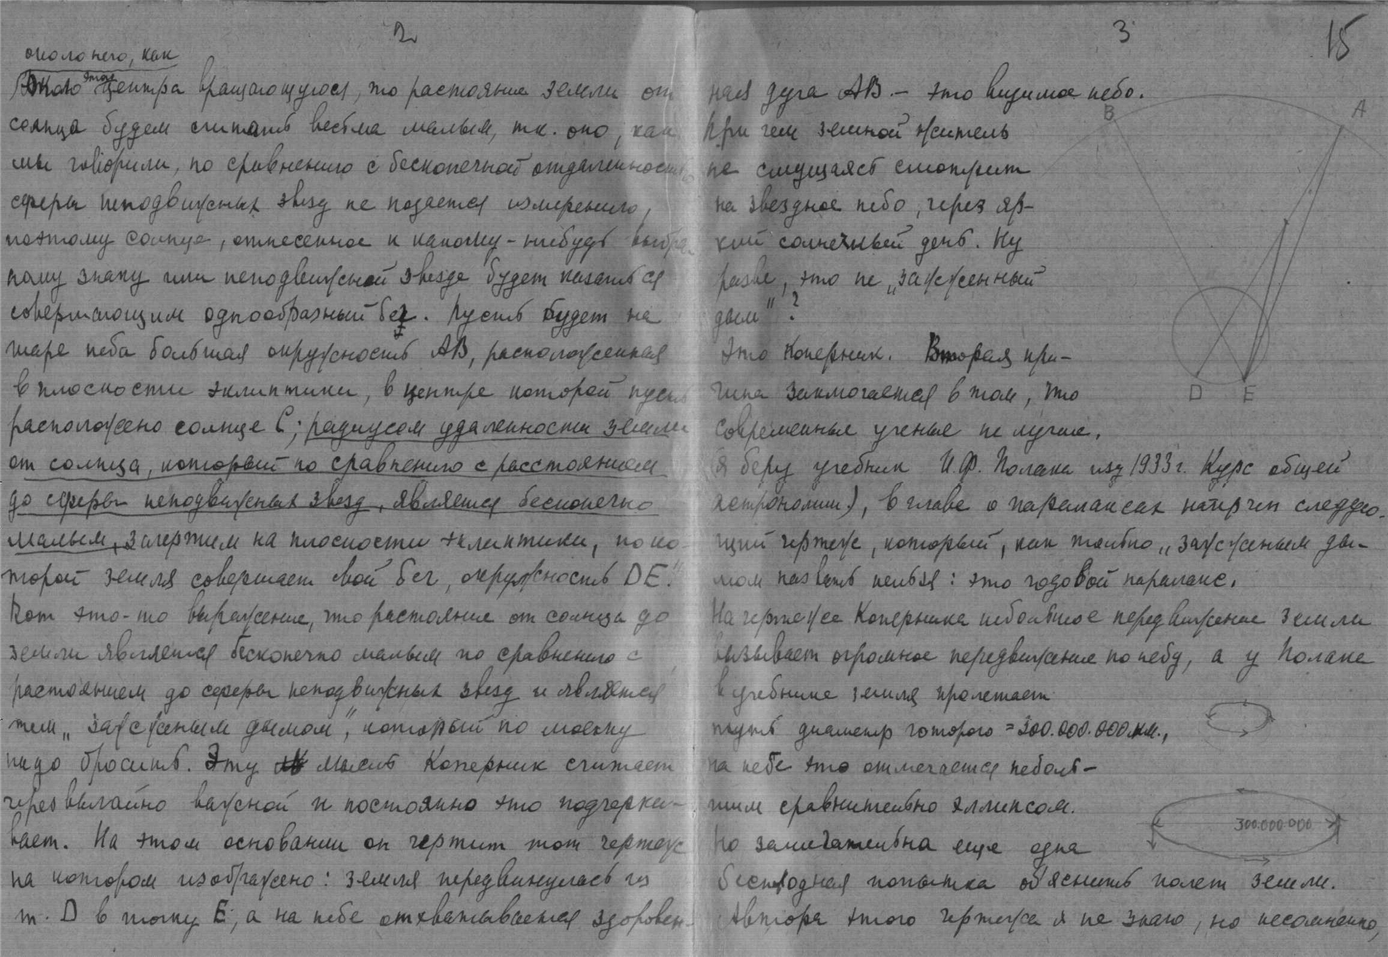 2
около него, как
Около этого центра вращающуюся, то растояние земли от
солнца будем считать весьма малым, т.к. оно, как
мы говорили, по сравнению с бесконечной отдаленностью
сферы неподвижных звезд не подается измерению,
поэтому солнце, отнесенное к какому-нибудь выбра
ному знаку или неподвижной звезде будет казаться
совершающим однообразный бег. Пусть будет на
шаре неба большая окружность AB, расположенная
в плоскости эклиптики, в центре которой пусть
расположено солнце C; радиусом удаленности земли
от солнца, который по сравнению с расстоянием
до сферы неподвижных звезд, является бесконечно
малым, зачертим на плоскости эклиптики, по ко-
торой земля совершает свой бег, окружность DE."
Вот это-то выражение, что растояние от солнца до
земли является бесконечно малым по сравнению с
растоянием до сферы неподвижных звезд и является
тем „зажженым дымом", который по моему
надо бросить. Эту мысль Коперник считает
черезвычайно важной и постоянно это подчерки-
вает. На этом основании он чертит тот чертеж
на котором изображено: земля передвинулась из
т. D в точку E, а на небе отхватывается здоровен-
3
15
ная дуга AB – это видимое небо.
При чем земной житель
не смущаясь смотрит
на звездное небо, через яр-
кий солнечный день. Ну
разве, это не „зажженный
дым"?
Это Коперник. Вторая при-
чина заключается в том, что
современные ученые не лучше.
Я беру учебник И.Ф. Полака изд 1933 г. Курс общей
астрономии), в главе о паралаксах начерчен следую-
щий чертеж, который, как только „зажженым ды-
мом назвать нельзя: это годовой паралакс.
На чертеже Коперника небольшое передвижение земли
вызывает огромное передвижение по небу, а у Полака
в учебнике земля пролетает
путь диаметр которого = 300.000.000 км.,
на небе это отмечается неболь-
шим сравнительно эллипсом.
Но замечательна еще одна
бесплодная попытка об'яснить полет земли.
Автора этого чертежа я не знаю, но несомненно,
B
A
D
E
300.000.000